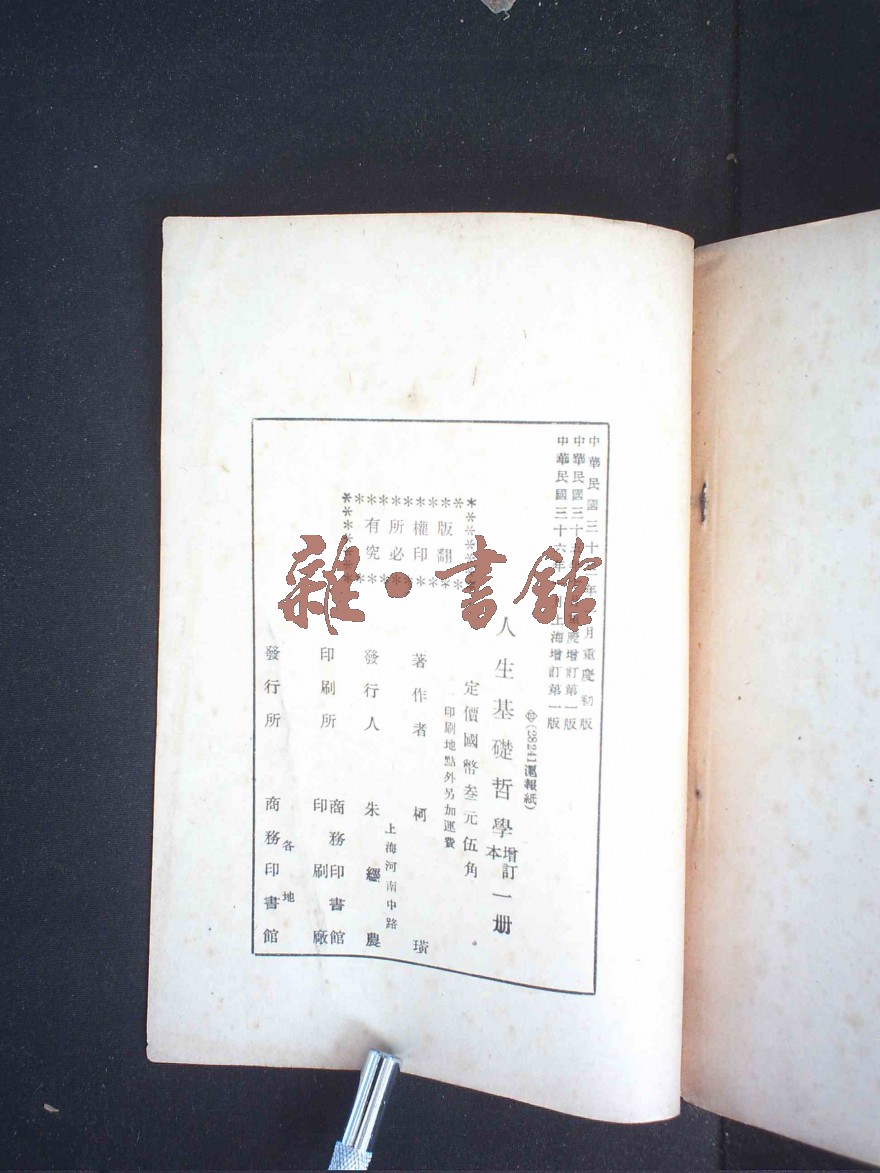 中華民國三十一年 月重慶初版
中華民國三十五 慶增訂第一版
中華民國三十六年 上海增訂第一版
⊕(28241滬報紙)
人生基礎哲學增訂本一册
定價國幣叁元伍角
印刷地點外另加運費
版權所有
翻印必究
著作者 柯璜
上海河南中路
發行人 朱經農
印刷所 商務印書館印刷廠
發行所 各地商務印書館
雜·書館